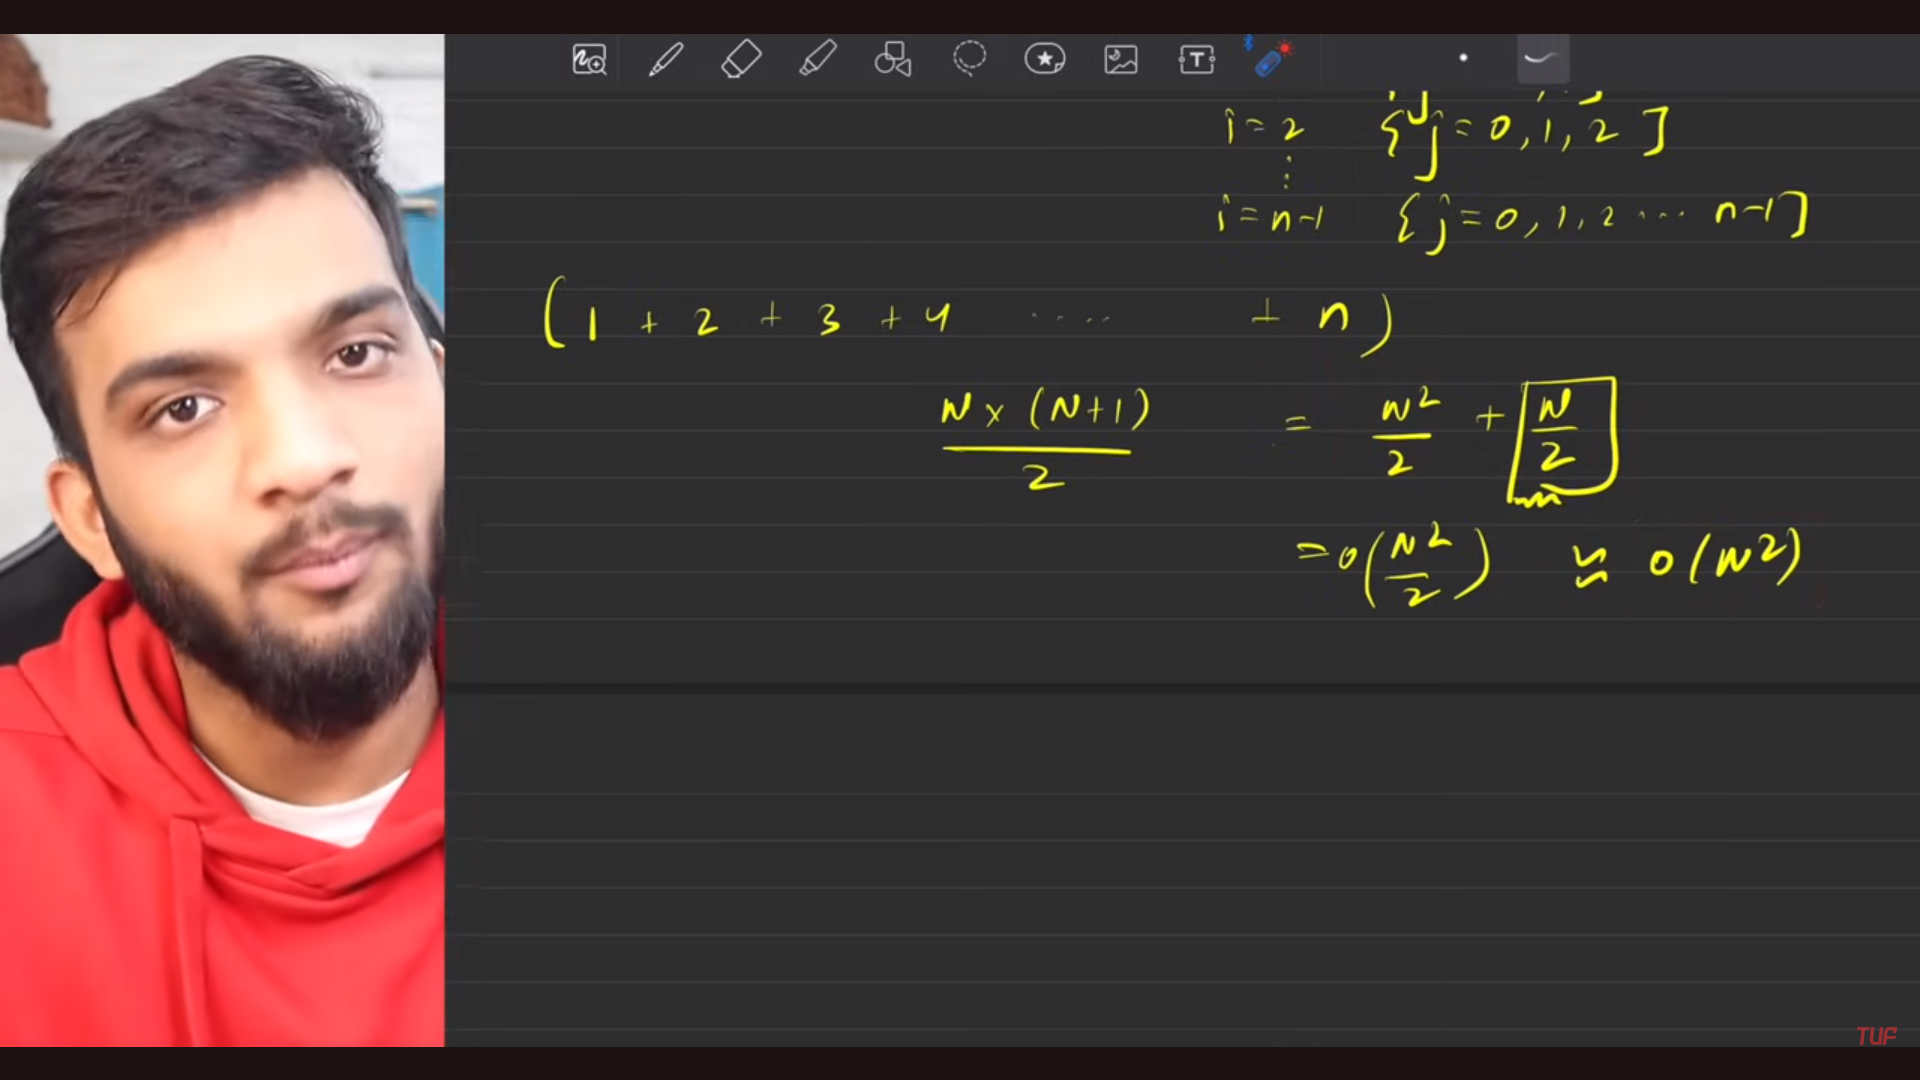 i = 2 { j = 0, 1, 2 ]
⋮
i = n-1 { j = 0, 1, 2 .... n-1 ]
( 1 + 2 + 3 + 4 .... + n )
N × (N+1) / 2 = N²/2 + N/2
= O(N²/2) ≈ O(N²)
TUF